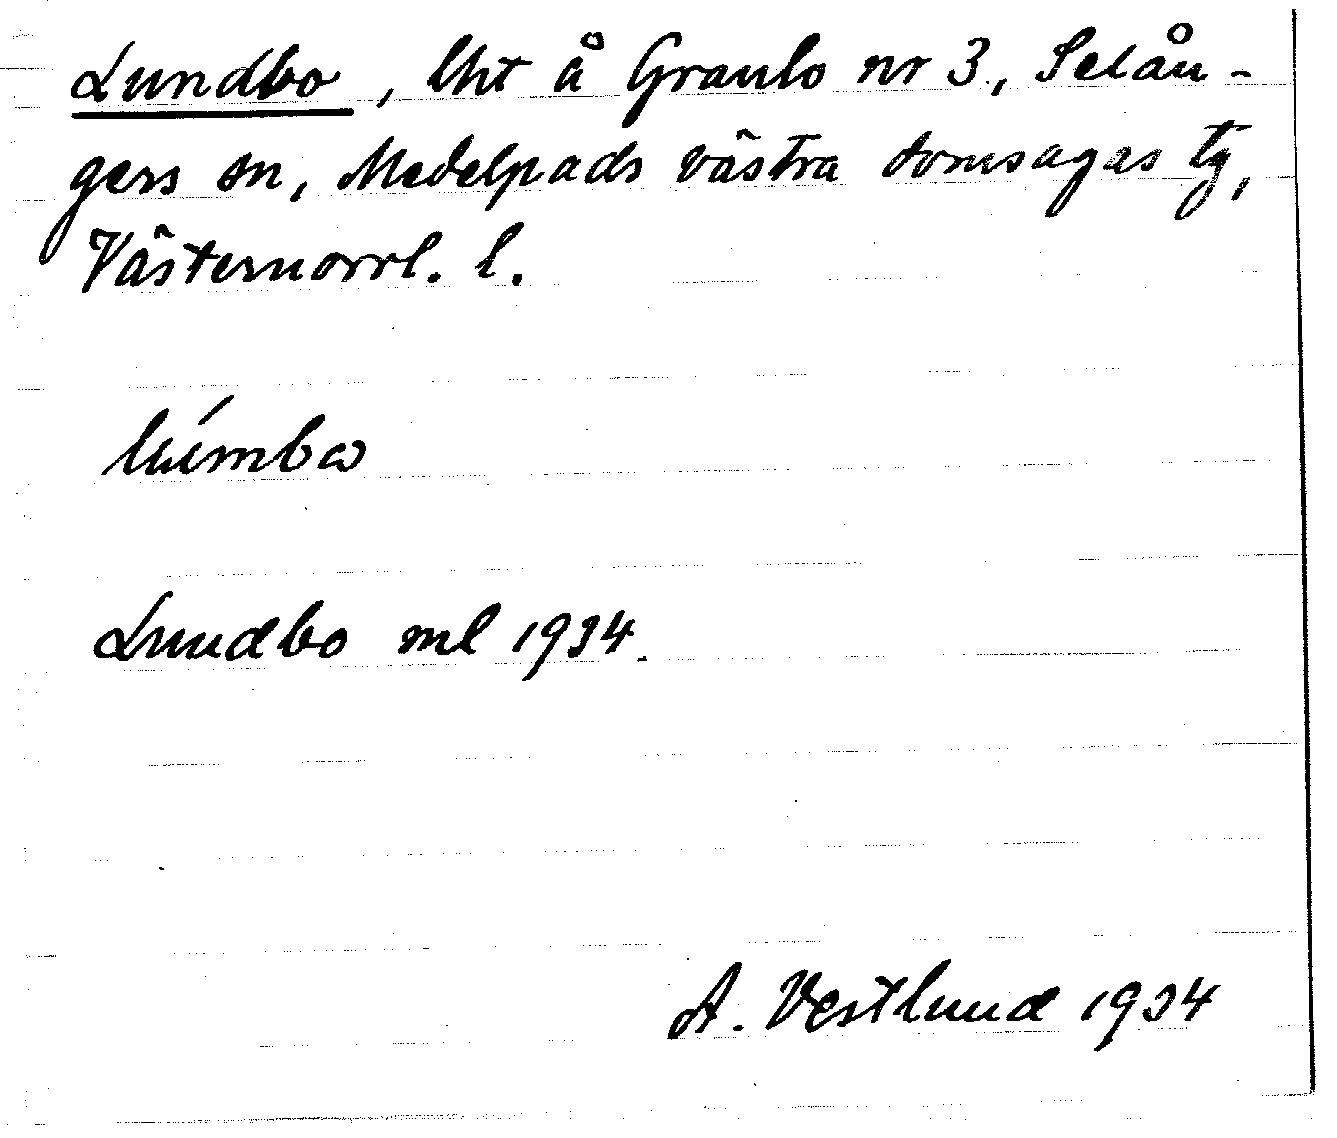 Lundbo, lht å Granlo nr 3, Selån-
gers sn, Medelpads västra domsagas tg,
Västernorrl. l.
Lundbo ml 1934.
A. Vestlund 1934